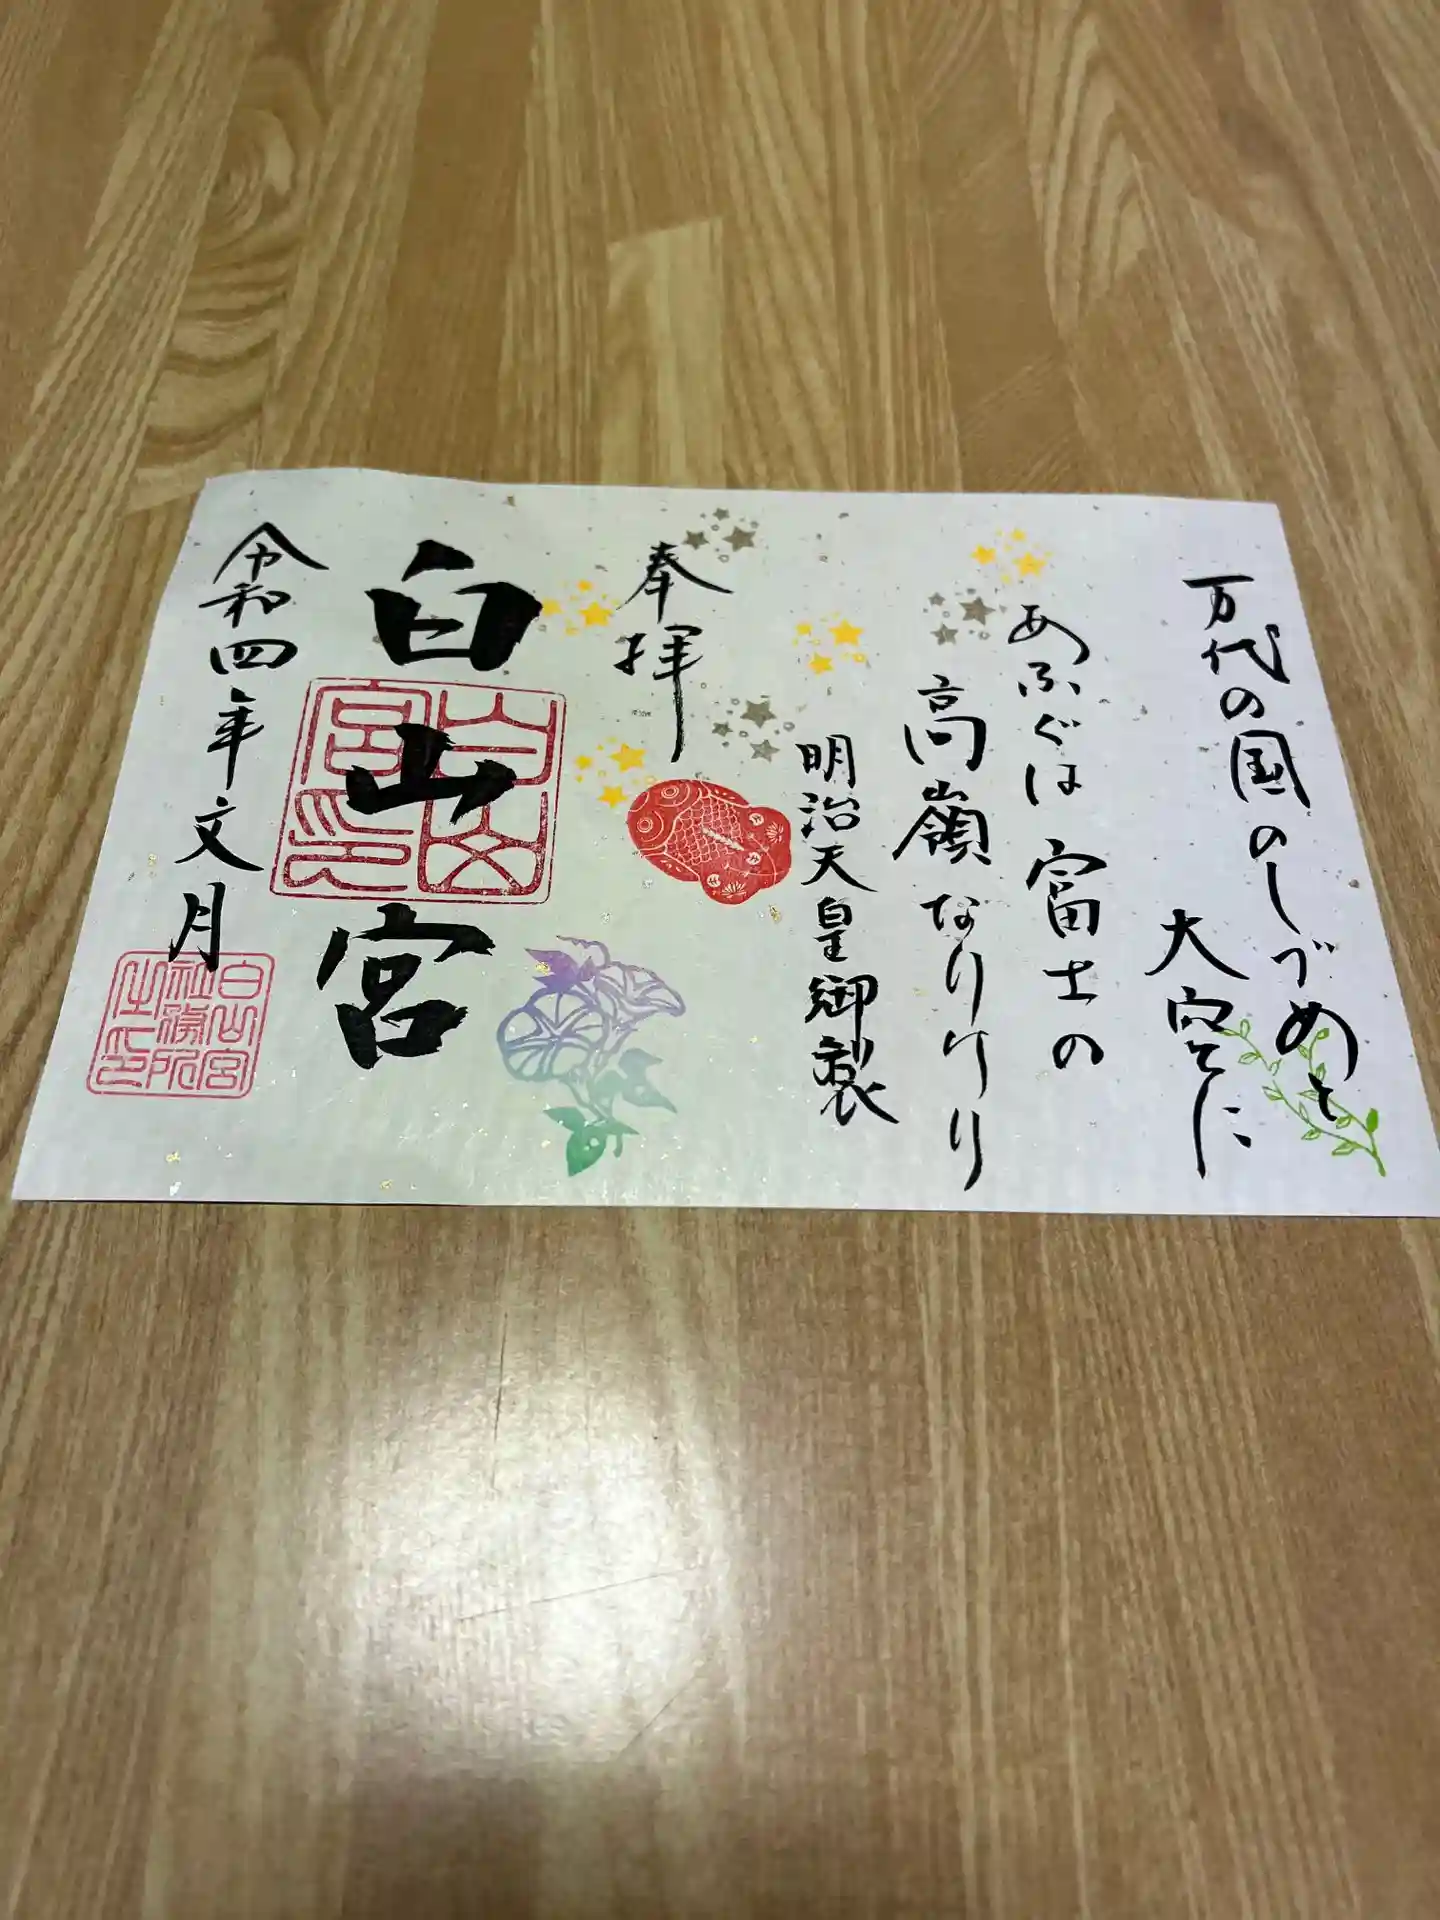 万代の国のしづめと
大空に
あふぐは富士の
高嶺なりけり
明治天皇御製
奉拝
白山宮
白山宮印
令和四年文月
白山宮
社務所
之印